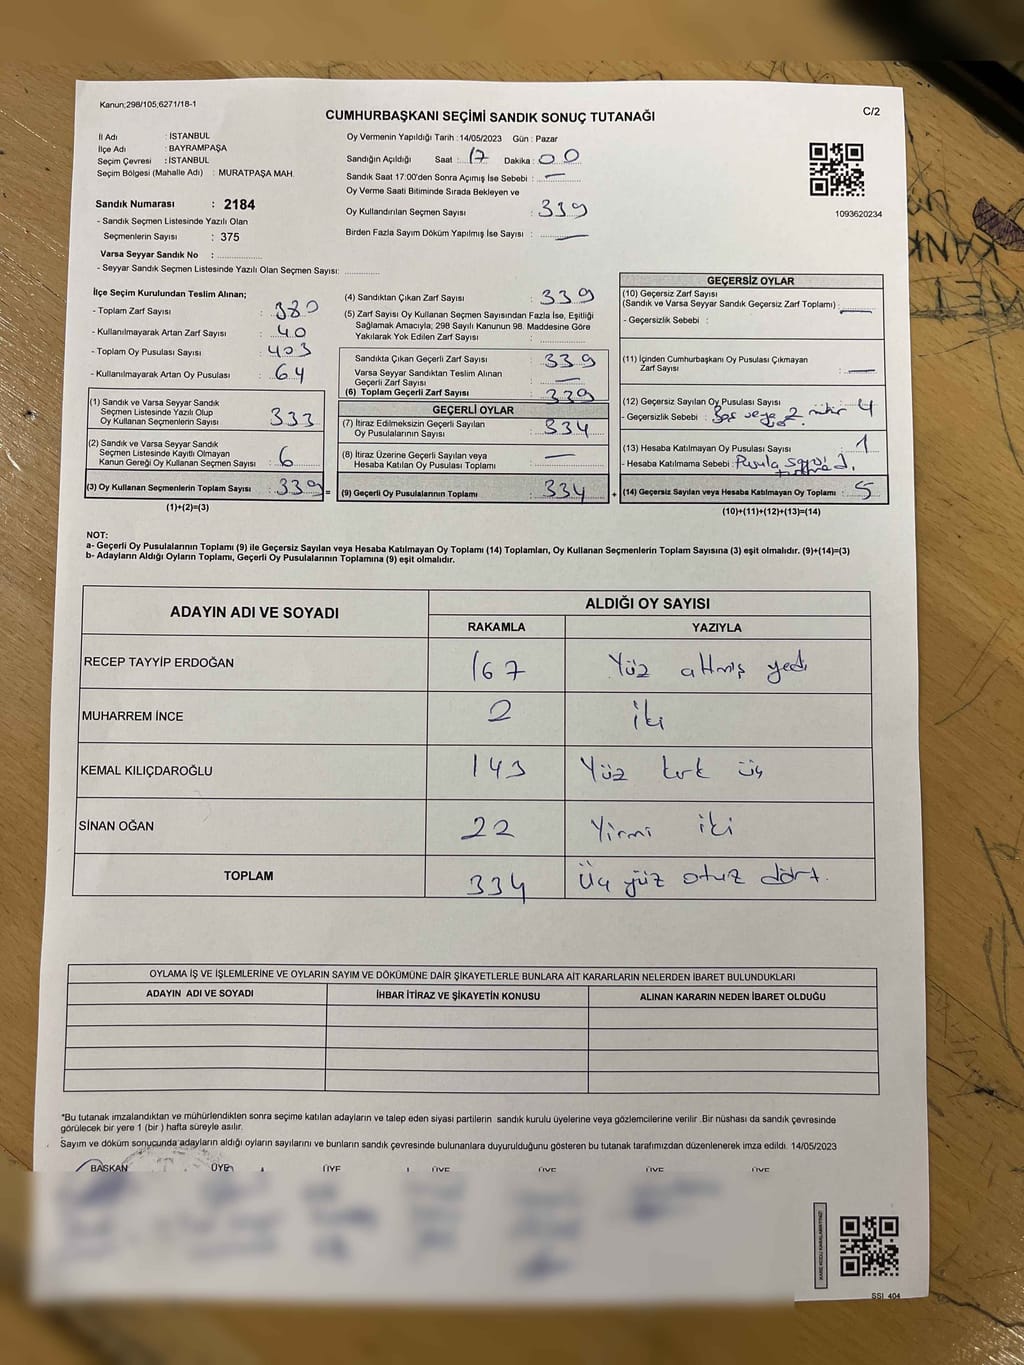 Kanun;298/105;6271/18-1
CUMHURBAŞKANI SEÇİMİ SANDIK SONUÇ TUTANAĞI
C/2
İl Adı : İSTANBUL
İlçe Adı : BAYRAMPAŞA
Seçim Çevresi : İSTANBUL
Seçim Bölgesi (Mahalle Adı) : MURATPAŞA MAH.
Sandık Numarası : 2184
- Sandık Seçmen Listesinde Yazılı Olan
Seçmenlerin Sayısı : 375
Varsa Seyyar Sandık No :
- Seyyar Sandık Seçmen Listesinde Yazılı Olan Seçmen Sayısı:
Oy Vermenin Yapıldığı Tarih : 14/05/2023 Gün : Pazar
Sandığın Açıldığı Saat : 17 Dakika : 00
Sandık Saat 17:00'den Sonra Açımış İse Sebebi : —
Oy Verme Saati Bitiminde Sırada Bekleyen ve
Oy Kullandırılan Seçmen Sayısı : 339
Birden Fazla Sayım Döküm Yapılmış İse Sayısı : —
1093620234
İlçe Seçim Kurulundan Teslim Alınan;
- Toplam Zarf Sayısı : 380
- Kullanılmayarak Artan Zarf Sayısı : 40
- Toplam Oy Pusulası Sayısı : 403
- Kullanılmayarak Artan Oy Pusulası : 64
(1) Sandık ve Varsa Seyyar Sandık
Seçmen Listesinde Yazılı Olup
Oy Kullanan Seçmenlerin Sayısı : 333
(2) Sandık ve Varsa Seyyar Sandık
Seçmen Listesinde Kayıtlı Olmayan
Kanun Gereği Oy Kullanan Seçmen Sayısı : 6
(3) Oy Kullanan Seçmenlerin Toplam Sayısı : 339 =
(1)+(2)=(3)
(4) Sandıktan Çıkan Zarf Sayısı : 339
(5) Zarf Sayısı Oy Kullanan Seçmen Sayısından Fazla İse, Eşitliği
Sağlamak Amacıyla; 298 Sayılı Kanunun 98. Maddesine Göre
Yakılarak Yok Edilen Zarf Sayısı :
Sandıkta Çıkan Geçerli Zarf Sayısı : 339
Varsa Seyyar Sandıktan Teslim Alınan
Geçerli Zarf Sayısı : —
(6) Toplam Geçerli Zarf Sayısı : 339
GEÇERLİ OYLAR
(7) İtiraz Edilmeksizin Geçerli Sayılan
Oy Pusulalarının Sayısı : 334
(8) İtiraz Üzerine Geçerli Sayılan veya
Hesaba Katılan Oy Pusulası Toplamı : —
(9) Geçerli Oy Pusulalarının Toplamı : 334 +
GEÇERSİZ OYLAR
(10) Geçersiz Zarf Sayısı
(Sandık ve Varsa Seyyar Sandık Geçersiz Zarf Toplamı) : —
- Geçersizlik Sebebi :
(11) İçinden Cumhurbaşkanı Oy Pusulası Çıkmayan
Zarf Sayısı : —
(12) Geçersiz Sayılan Oy Pusulası Sayısı : 4
- Geçersizlik Sebebi : Boş veya 2 mühür
(13) Hesaba Katılmayan Oy Pusulası Sayısı : 1
- Hesaba Katılmama Sebebi : Pusula sayısı
(14) Geçersiz Sayılan veya Hesaba Katılmayan Oy Toplamı : 5
(10)+(11)+(12)+(13)=(14)
NOT:
a- Geçerli Oy Pusulalarının Toplamı (9) ile Geçersiz Sayılan veya Hesaba Katılmayan Oy Toplamı (14) Toplamları, Oy Kullanan Seçmenlerin Toplam Sayısına (3) eşit olmalıdır. (9)+(14)=(3)
b- Adayların Aldığı Oyların Toplamı, Geçerli Oy Pusulalarının Toplamına (9) eşit olmalıdır.
ADAYIN ADI VE SOYADI ALDIĞI OY SAYISI
RAKAMLA YAZIYLA
RECEP TAYYİP ERDOĞAN 167 Yüz altmış yedi
MUHARREM İNCE 2 iki
KEMAL KILIÇDAROĞLU 143 Yüz kırk üç
SİNAN OĞAN 22 Yirmi iki
TOPLAM 334 Üç yüz otuz dört.
OYLAMA İŞ VE İŞLEMLERİNE VE OYLARIN SAYIM VE DÖKÜMÜNE DAİR ŞİKAYETLERLE BUNLARA AİT KARARLARIN NELERDEN İBARET BULUNDUKLARI
ADAYIN ADI VE SOYADI İHBAR İTİRAZ VE ŞİKAYETİN KONUSU ALINAN KARARIN NEDEN İBARET OLDUĞU
*Bu tutanak imzalandıktan ve mühürlendikten sonra seçime katılan adayların ve talep eden siyasi partilerin sandık kurulu üyelerine veya gözlemcilerine verilir .Bir nüshası da sandık çevresinde
görülecek bir yere 1 (bir ) hafta süreyle asılır.
Sayım ve döküm sonucunda adayların aldığı oyların sayılarını ve bunların sandık çevresinde bulunanlara duyurulduğunu gösteren bu tutanak tarafımızdan düzenlenerek imza edildi. 14/05/2023
BAŞKAN ÜYE ÜYE ÜYE ÜYE ÜYE ÜYE
KARE KODU KARALAMAYINIZ!
SSI_404